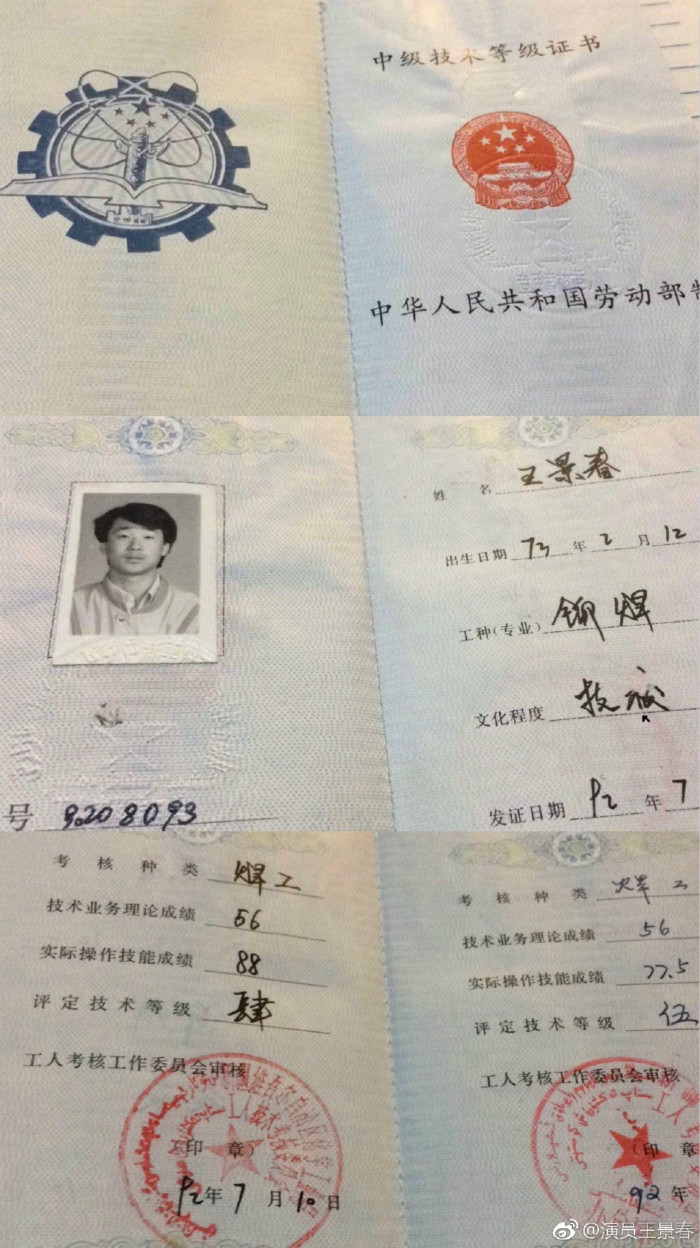 中级技术等级证书
中华人民共和国劳动部制
姓 名 王景春
出生日期 73 年 2 月 12
工种(专业) 铆焊
文化程度 技校
发证日期 92 年 7
号 9208093
考 核 种 类 焊工
技术业务理论成绩 56
实际操作技能成绩 88
评定技术等级 肆
工人考核工作委员会审核
(印 章)
92年 7 月 10 日
考 核 种 类 焊工
技术业务理论成绩 56
实际操作技能成绩 77.5
评定技术等级 伍
工人考核工作委员会审核
(印 章
92 年
@演员王景春